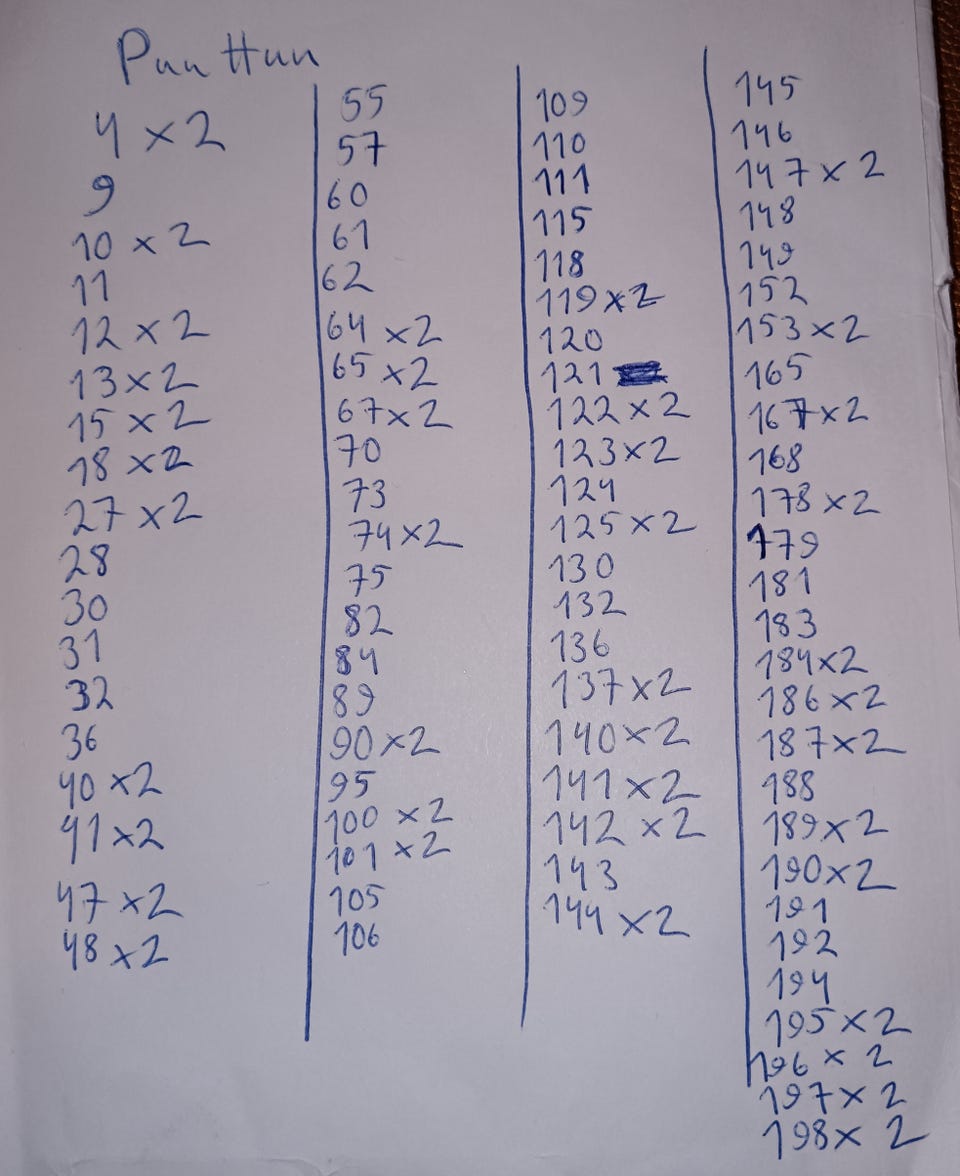 Pun Hun
4 x 2
9
10 x 2
11
12 x 2
13 x 2
15 x 2
18 x 2
27 x 2
28
30
31
32
36
40 x 2
41 x 2
47 x 2
48 x 2
55
57
60
61
62
64 x 2
65 x 2
67 x 2
70
73
74 x 2
75
82
84
89
90 x 2
95
100 x 2
101 x 2
105
106
109
110
111
115
118
119 x 2
120
121
122 x 2
123 x 2
124
125 x 2
130
132
136
137 x 2
140 x 2
141 x 2
142 x 2
143
144 x 2
145
146
147 x 2
148
149
152
153 x 2
165
167 x 2
168
178 x 2
179
181
183
184 x 2
186 x 2
187 x 2
188
189 x 2
190 x 2
191
192
194
195 x 2
196 x 2
197 x 2
198 x 2